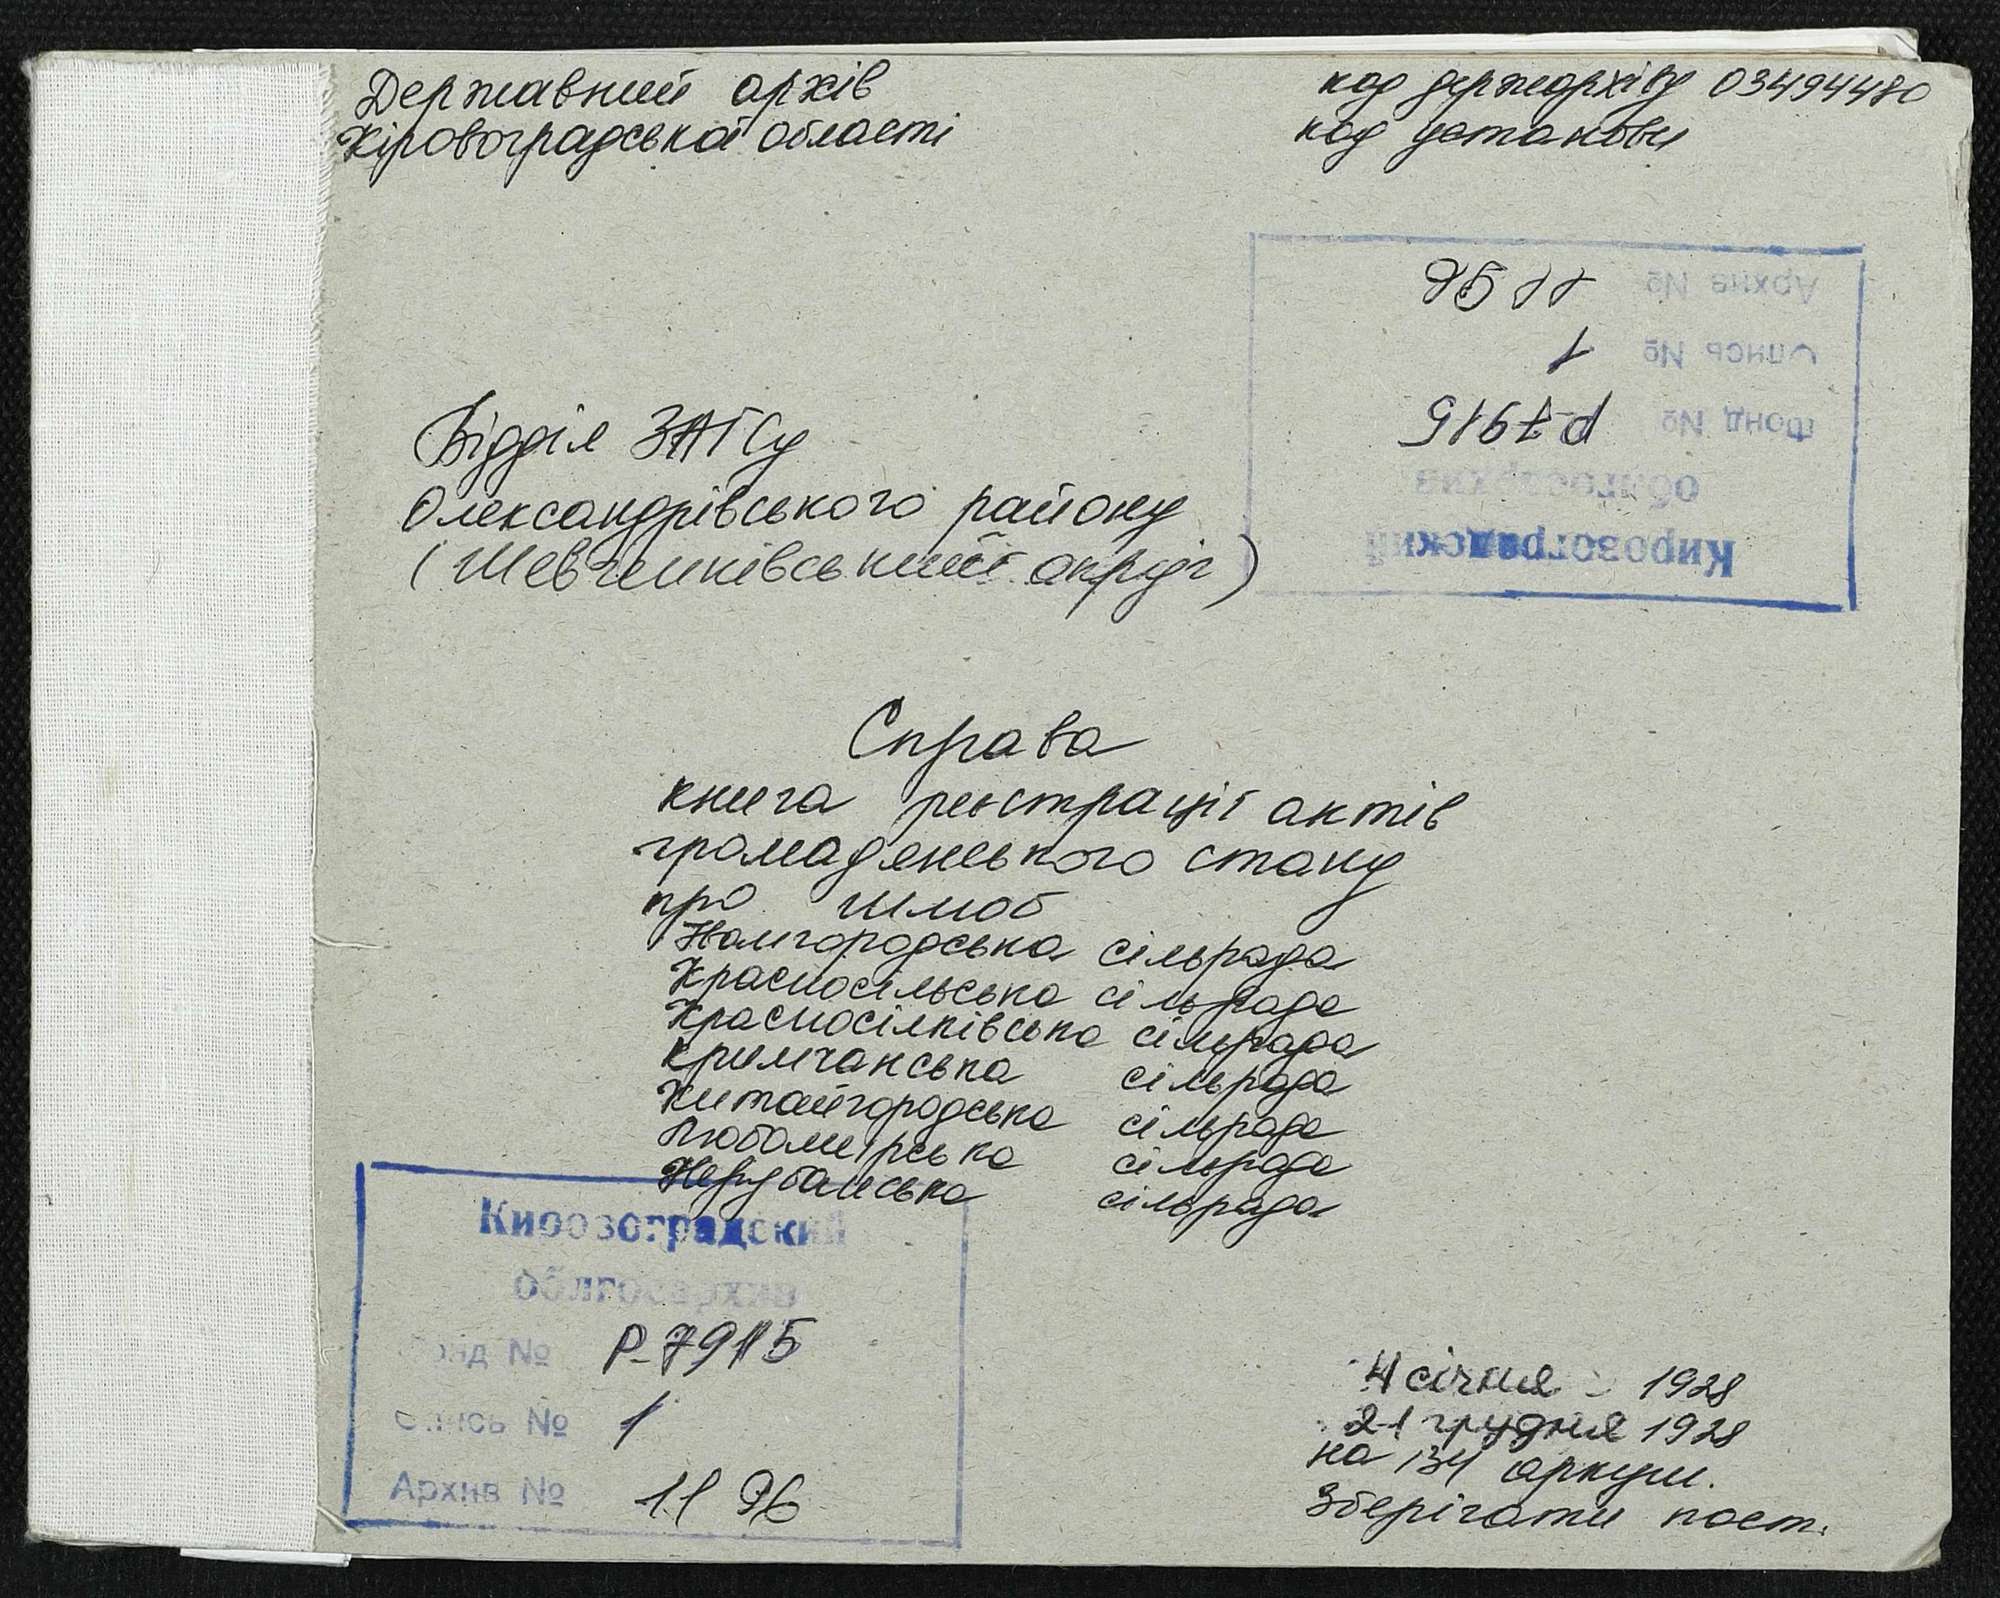 Державний архів
Кіровоградської області
код держархіву 03494480
код установи
Кировоградский
облгосархив
Фонд № Р-7915
Опись № 1
Архив № 1196
Відділ ЗАГСу
Олександрівського району
(Шевченківський округ)
Справа
книга реєстрації актів
громадянського стану
про шлюб
сільрада
Красносільська сільрада
Красносілківська сільрада
Кримчанська сільрада
Китайгородська сільрада
Любомирська сільрада
Нерубайська сільрада
Кировоградский
облгосархив
Фонд № Р-7915
Опись № 1
Архив № 1196
4 січня 1928
21 грудня 1928
на 134 аркуш.
Зберігати пост.